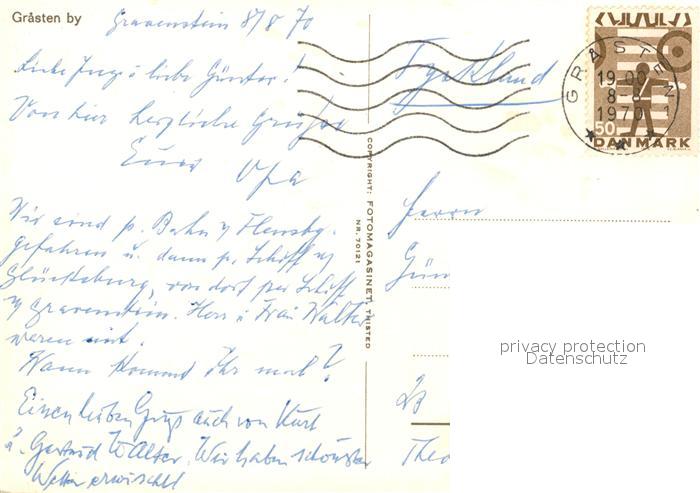 Gråsten by
Gravenstein 8/8 70
Liebe Inge u liebe Günter!
Von hier herzliche Grüße
Euer
Opa
Wir sind p. Bahn n/ Flensbg.
gefahren u. dann p. Schiff n/
Glücksburg, von dort per Schiff
n/ Gravenstein. Herr u Frau Walter
waren mit.
Wann kommt ihr mal?
Einen lieben Gruß auch von Kurt
u. Gertrud Walter. Wir haben schönstes
Wetter erwischt
COPYRIGHT: FOTOMAGASINET, THISTED
NR. 70121
Tyskland
GRÅSTEN
19.00
8-8
1970
50
DANMARK
Herrn
Gün
privacy protection
Datenschutz
23
Theo